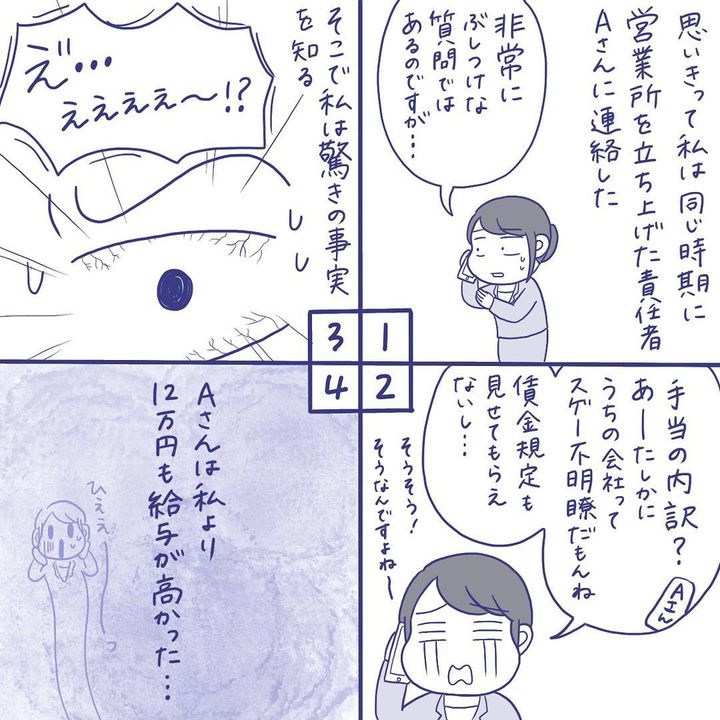 思いきって私は同じ時期に
営業所を立ち上げた責任者
Aさんに連絡した
非常に
ぶしつけな
質問では
あるのですが…
1
手当の内訳？
あーたしかに
うちの会社って
スゲー不明瞭だもんね
賃金規定も
見せてもらえ
ないし…
Aさん
そうそう！
そうなんですよねー
2
そこで私は驚きの事実
を知る
え゛…
ええええ〜!?
3
Aさんは私より
12万円も給与が高かった…
ひええ〜っ
4